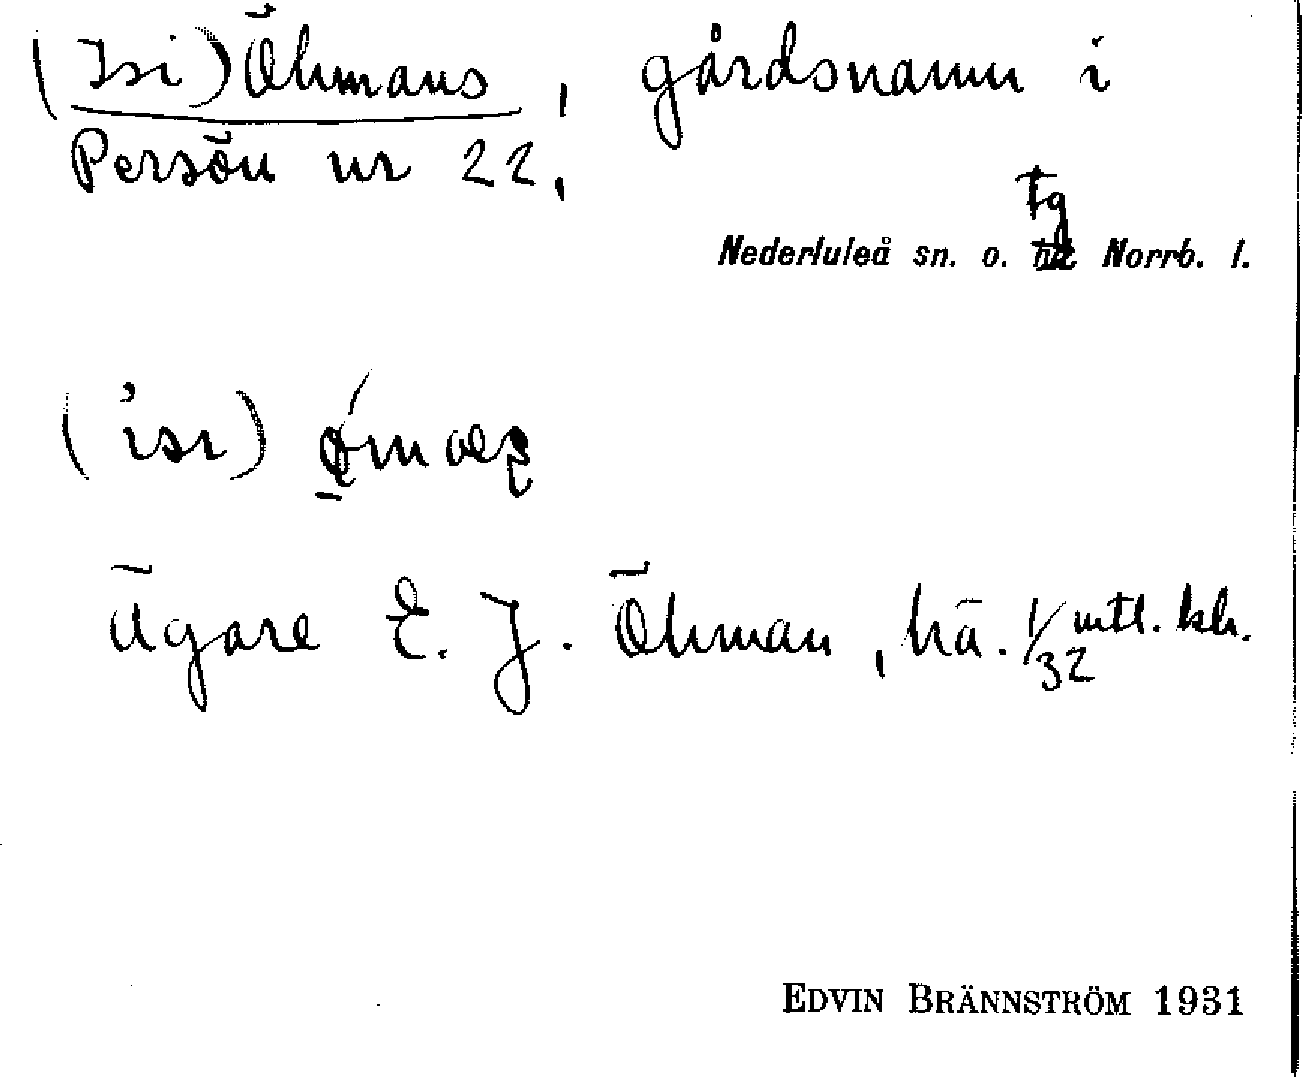 (Isi) Öhmans, gårdsnamn i
Persön nr 22,
tg
Nederluleå sn. o. Norrb. l.
Ägare E. J. Öhman, hä. 1/32 mtl. kr.
EDVIN BRÄNNSTRÖM 1931